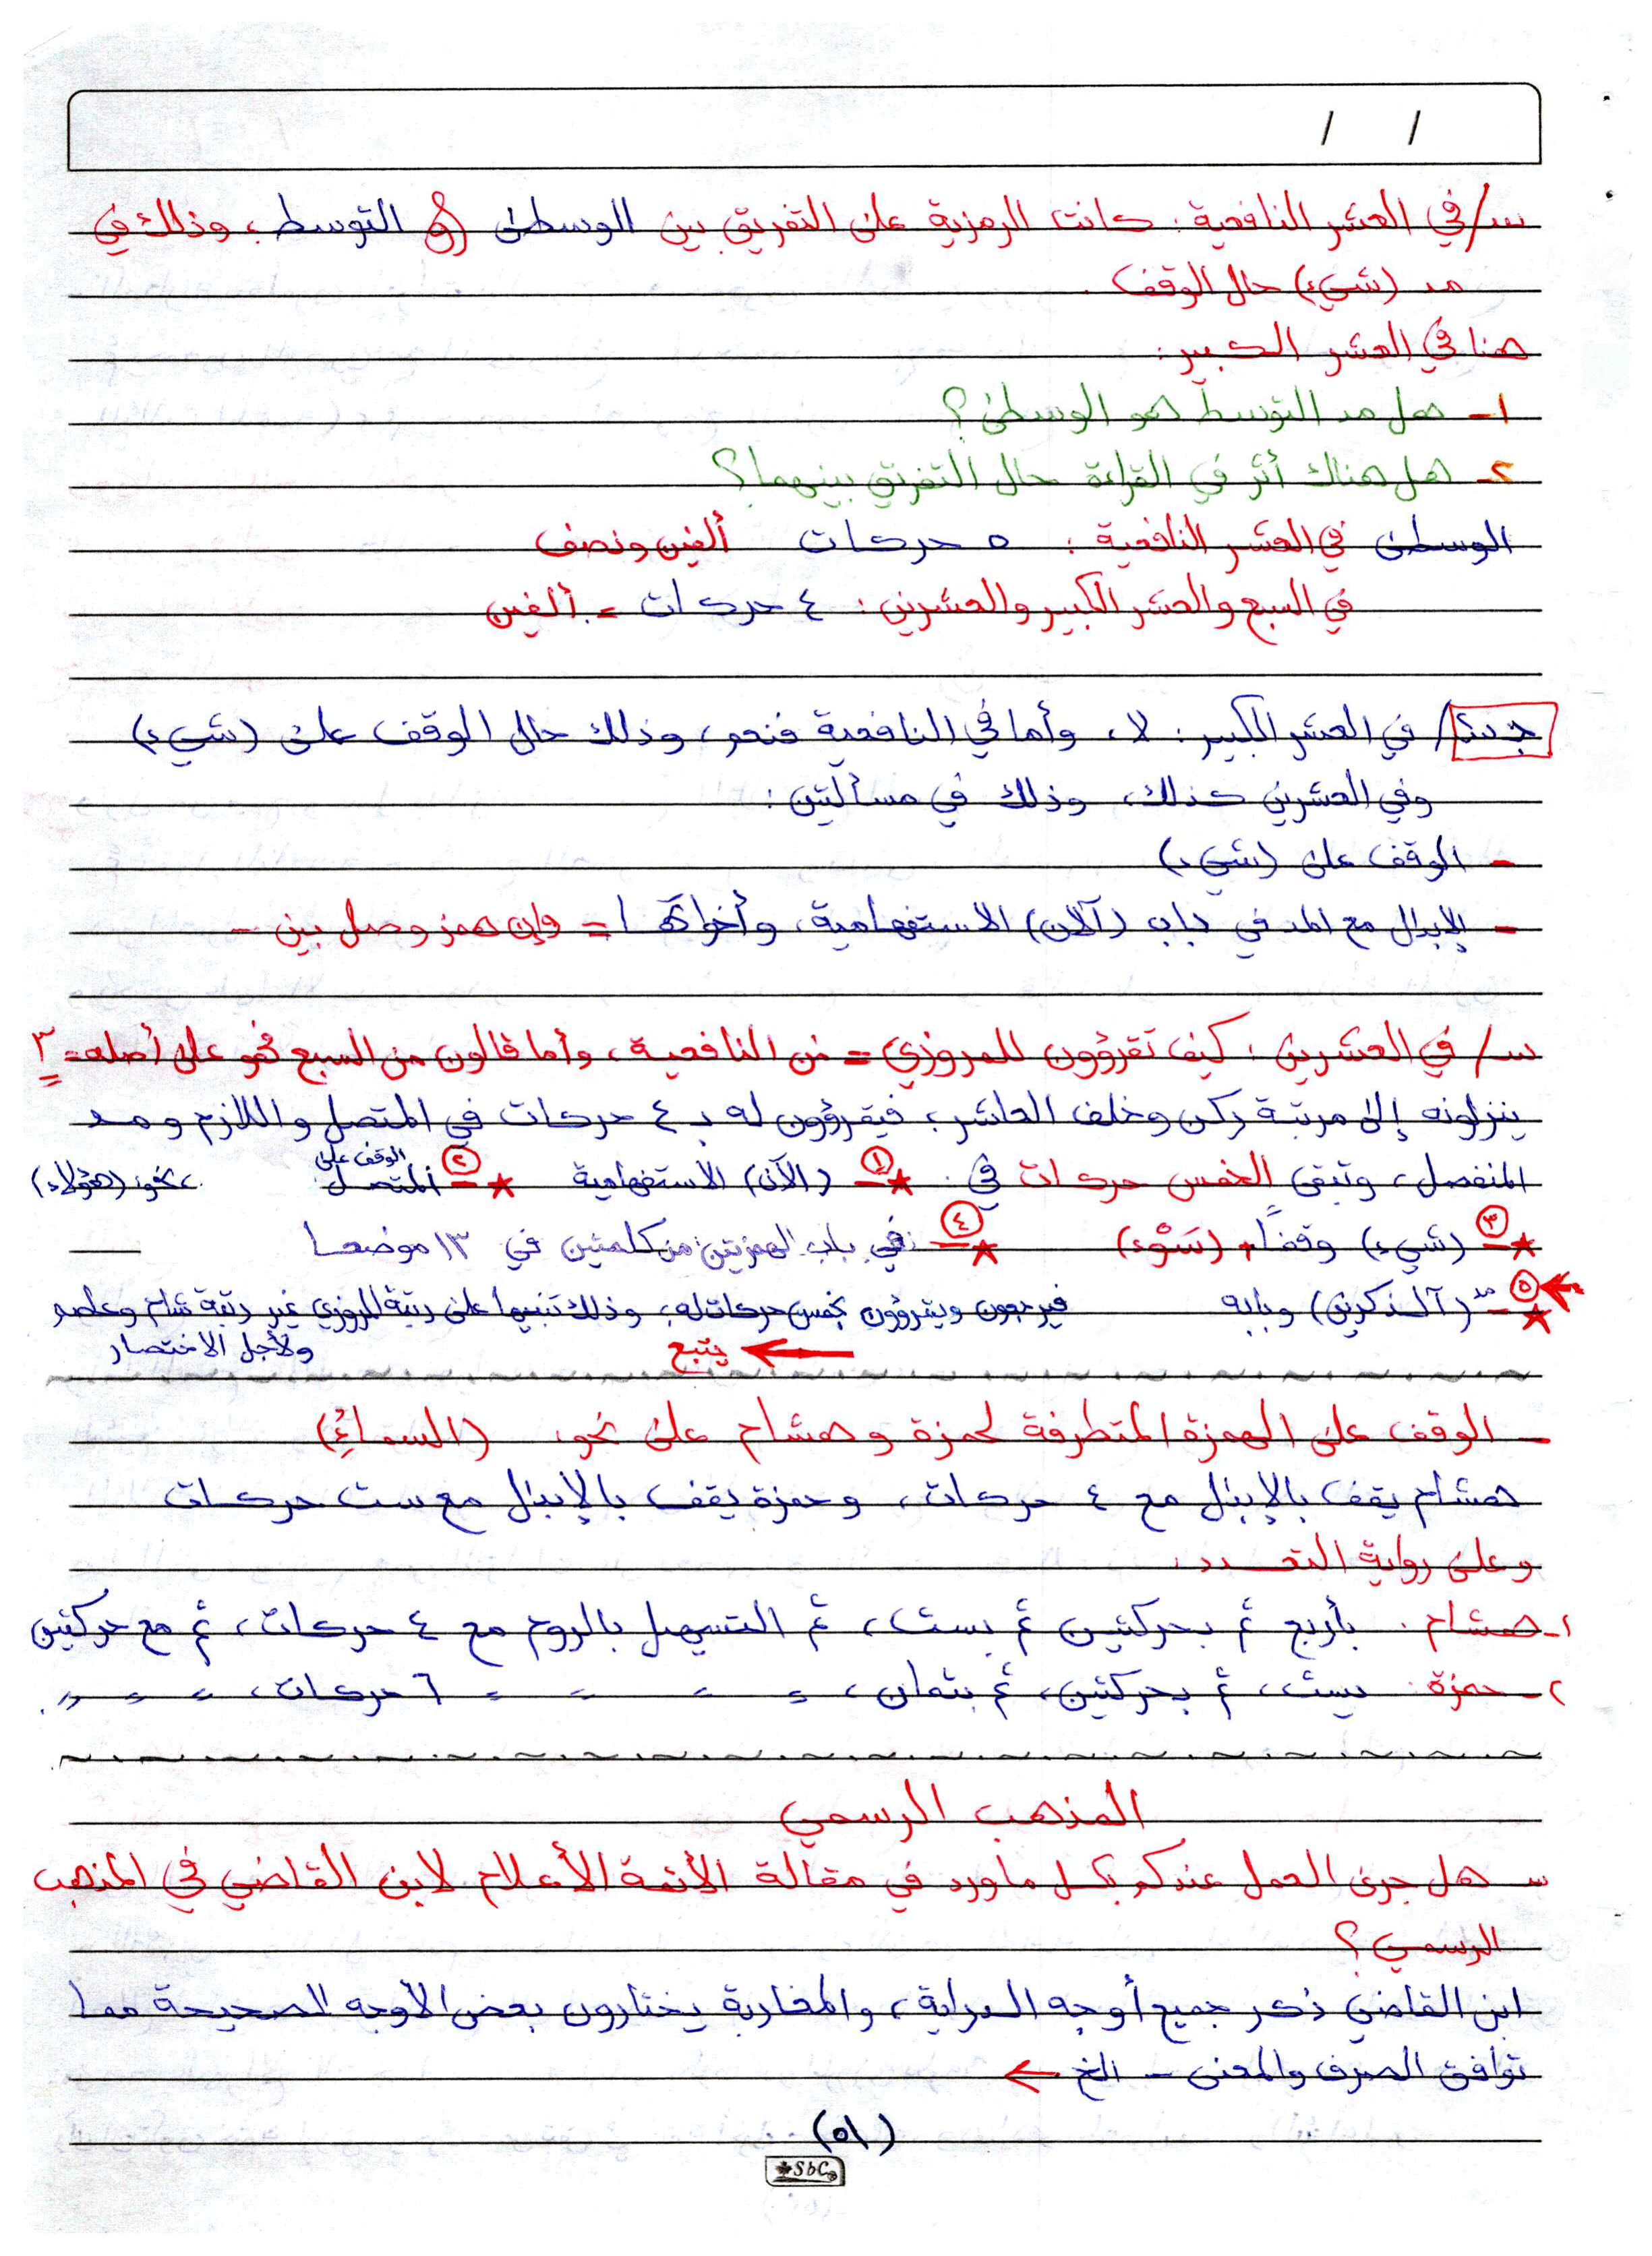 / /
س/ في العشر النافعية: كانت الرمزية على التفريق بين الوسطى و التوسط، وذلك في
مد (شيء) حال الوقف.
هنا في العشر الكبير:
١- هل مد التوسط هو الوسطى؟
٢- هل هناك أثر في القراءة حال التفريق بينهما؟
الوسطى في العشر النافعية: ٥ حركات ألفين ونصف
في السبع والعشر الكبير والعشرين: ٤ حركات = ألفين
جـ/ في العشر الكبير: لا، وأما في النافعية فنعم، وذلك حال الوقف على (شيء)
وفي العشرين كذلك، وذلك في مسألتين:
- الوقف على (شيء)
- الإبدال مع المد في باب (آلان) الاستفهامية، وأخواتها = وإن همز وصل بين -
س/ في العشرين: كيف تقرؤون للمروزي = من النافعية، وأما قالون من السبع فهو على أصله = ٣
ينزلونه إلى مرتبة ركن وخلف العاشر، فيقرؤون له بـ ٤ حركات في المتصل واللازم ومد
المنفصل، وتبقى الخمس حركات في: ① - (الآن) الاستفهامية ② - الوقف على المتصل، نحو: (هؤلاء)
③ - (شيء) وقفاً، (سَوْء) ④ - في باب الهمزتين من كلمتين في ١٣ موضعا
⑤ - (آلذكرين) وبابه فيرجعون ويقرؤون بخمس حركات له، وذلك تنبيها على رتبة المروزي غير رتبة شام وعاصم
ولأجل الاختصار
يتبع
- الوقف على الهمزة المتطرفة لحمزة وهشام على نحو، (السماءُ)
هشام يقف بالإبدال مع ٤ حركات، وحمزة يقف بالإبدال مع ست حركات
وعلى رواية التعدد:
١- هشام: بأربع ثم بحركتين ثم بست، ثم التسهيل بالروم مع ٤ حركات، ثم مع حركتين
٢- حمزة: بست، ثم بحركتين، ثم بثمان، = = = = ٦ حركات، = = = 〃.
المذهب الرسمي
س هل جرى العمل عندكم بكل ما ورد في مقالة الأئمة الأعلام لابن القاضي في المذهب
الرسمي؟
ابن القاضي ذكر جميع أوجه الدراية، والمغاربة يختارون بعض الأوجه الصحيحة مما
توافق الصرف والمعنى - الخ ←
(٥١)
SbC